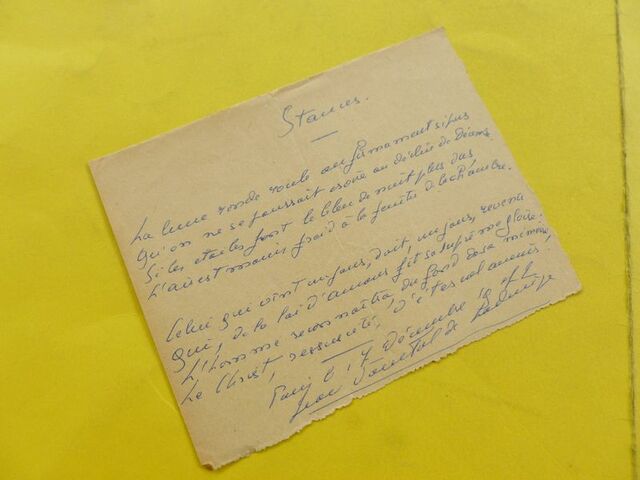 Stances.
La lune ronde roule au firmament si pur
Qu'on ne se pourrait croire au déclin de Décembre
Si les étoiles font le bleu de nuit plus
L'air est moins froid à la fenêtre de la chambre.
Celui qui vint un jour, doit, un jour, revenir
Qui, de la loi d'amour fit sa suprême gloire.
L'homme reconnaîtra du fond de sa mémoire
Le Christ, ressuscité,
Paris le 17 Décembre 19
Jean